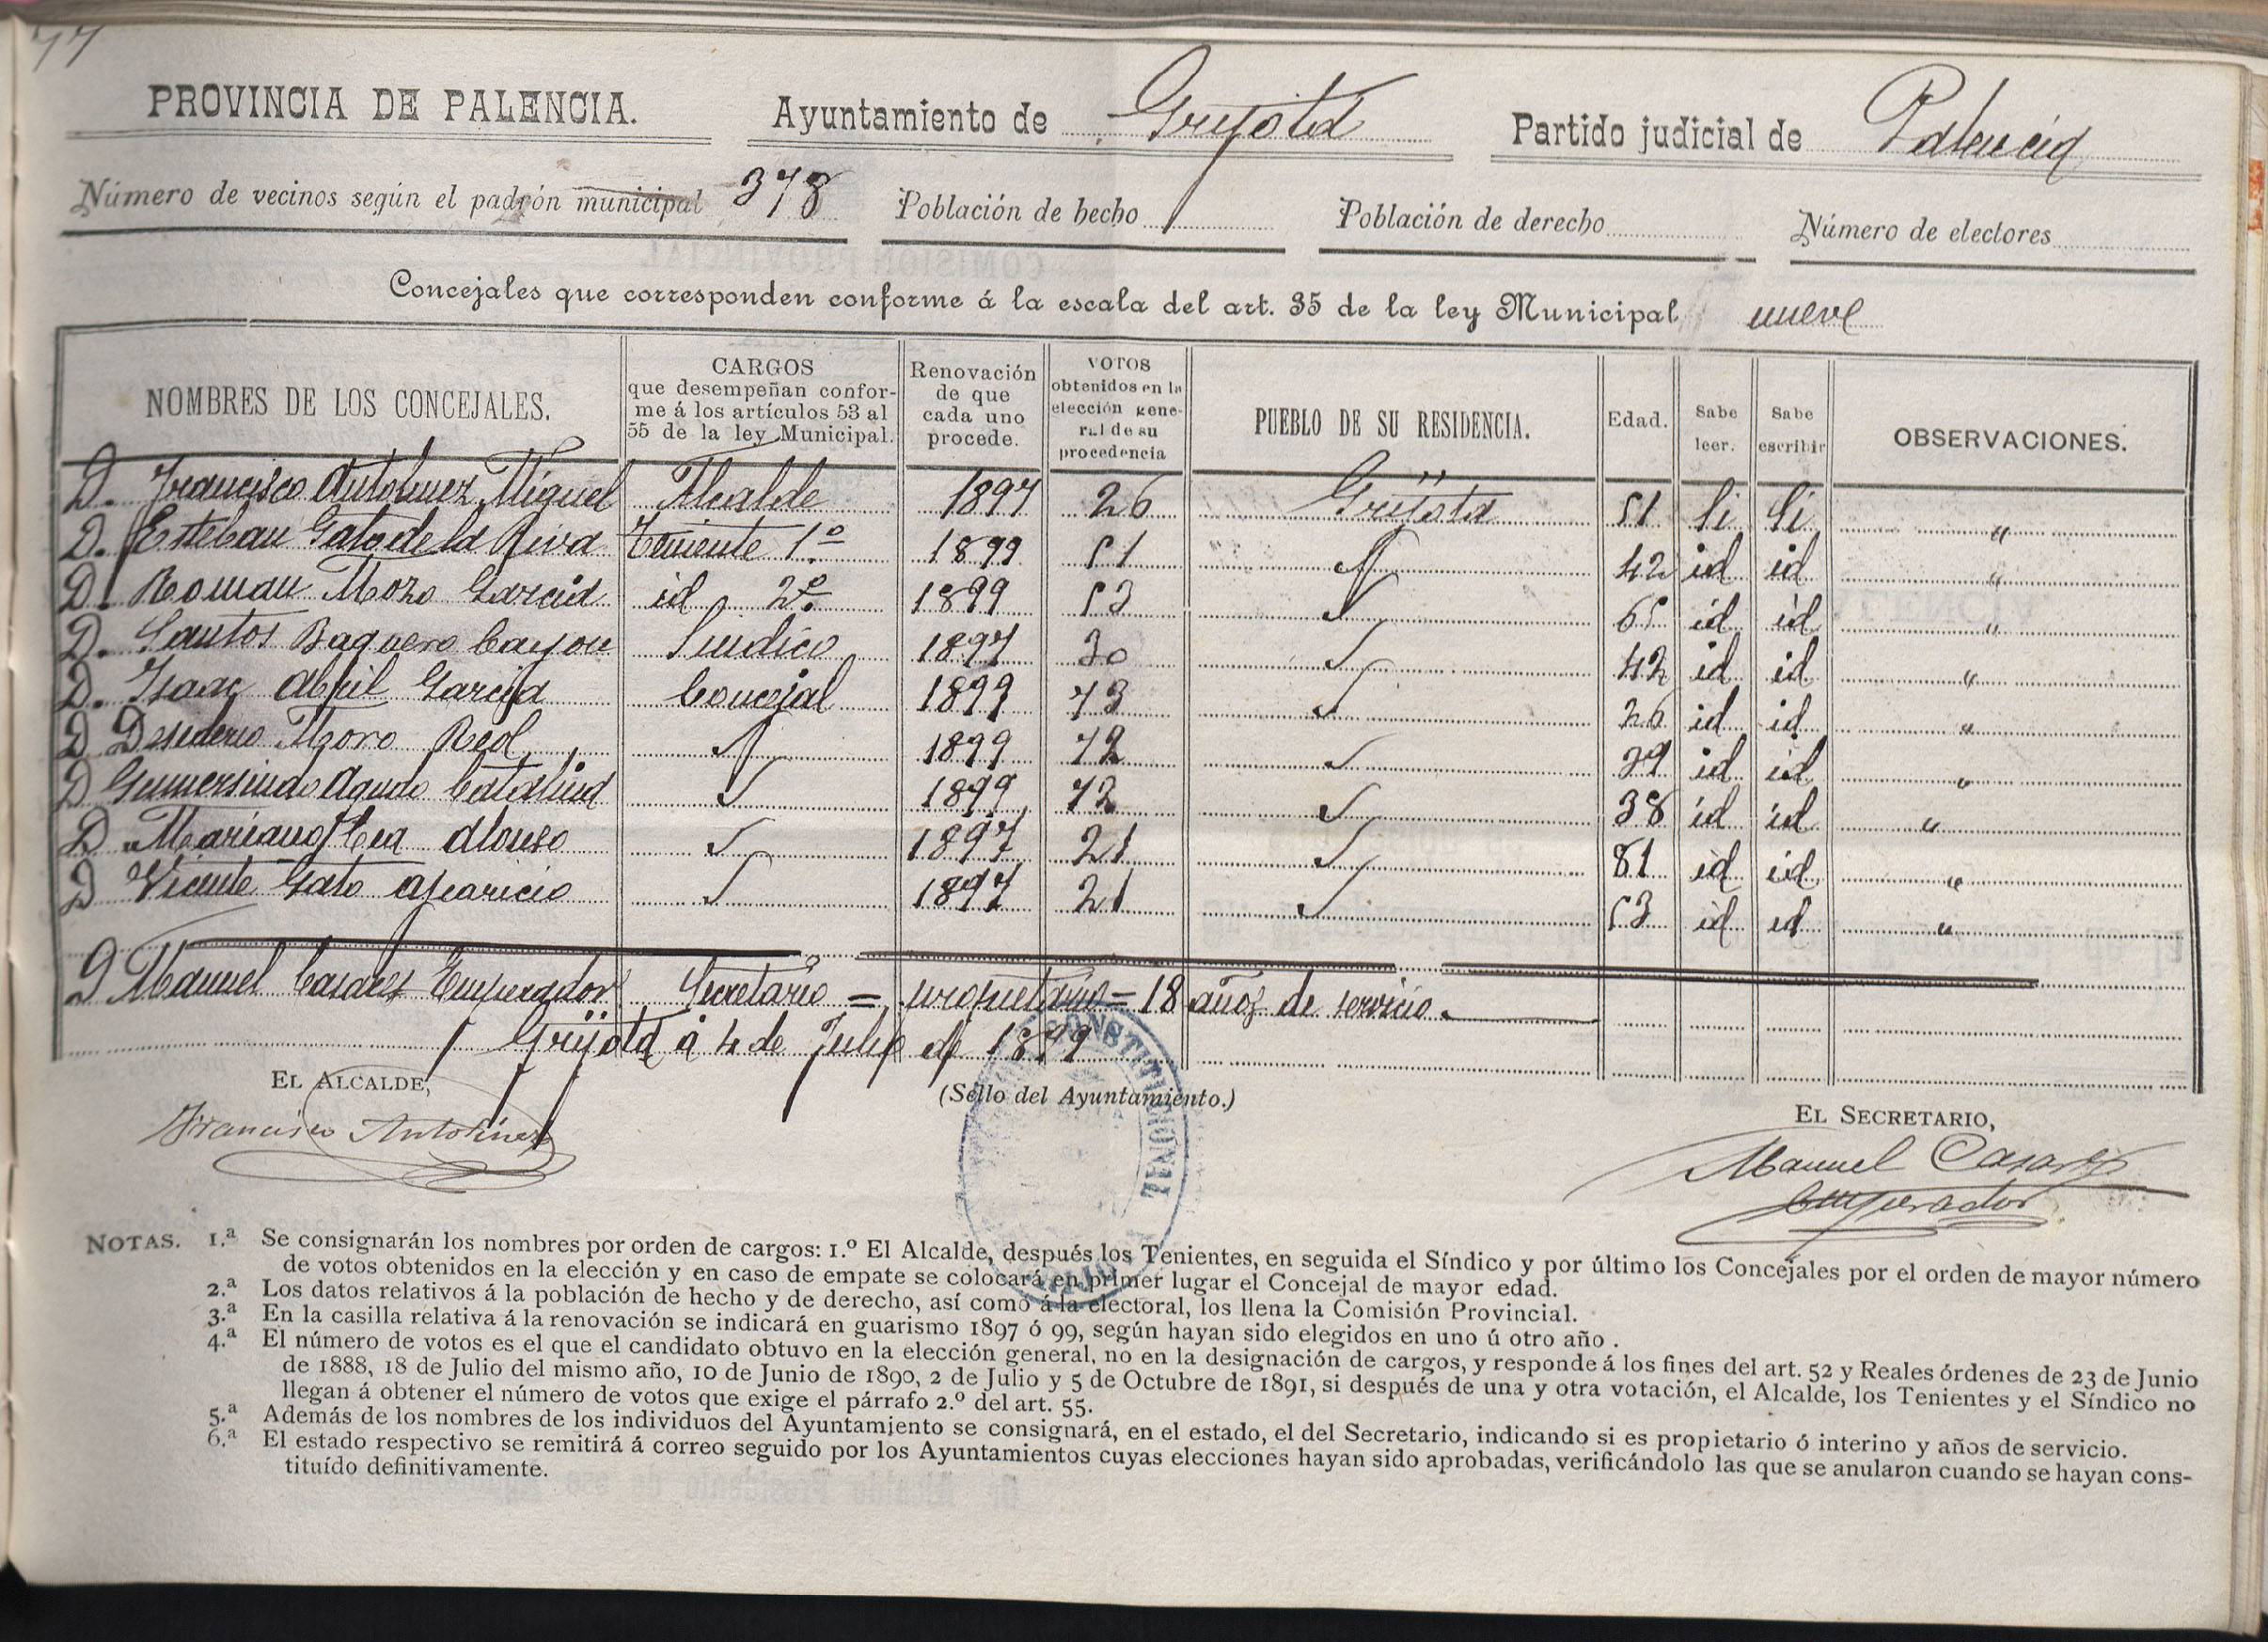 77
PROVINCIA DE PALENCIA. Ayuntamiento de Grijota Partido judicial de Palencia
Número de vecinos según el padrón municipal 378 Población de hecho Población de derecho Número de electores
Concejales que corresponden conforme á la escala del art. 35 de la ley Municipal nueve
NOMBRES DE LOS CONCEJALES. CARGOS que desempeñan confor- me á los artículos 53 al 55 de la ley Municipal. Renovación de que cada uno procede. VOTOS obtenidos en la elección gene- ral de su procedencia PUEBLO DE SU RESIDENCIA. Edad. Sabe leer. Sabe escribir OBSERVACIONES.
D. Francisco Antolinez Miguel Alcalde 1897 26 Grijota 51 Si Si "
D. Esteban Gato de la Riva Teniente 1º 1899 51 " 42 id id "
D. Roman Mozo Garcia id 2º 1899 53 " 65 id id "
D. Santos Baquero Cayon Sindico 1897 30 " 42 id id "
D. Isaac Abril Garcia Concejal 1899 73 " 26 id id "
D Desiderio Moro Reol " 1899 72 " 39 id id "
D Gumersindo Agudo Catalina " 1899 72 " 38 id id "
D Mariano Alonso " 1897 21 " 81 id id "
D Vicente Gato Aparicio " 1897 21 " 53 id id "
D Manuel Casares Emperador Secretario = propietario = 18 años de servicio.
Grijota á 4 de Julio de 1899
EL ALCALDE, (Sello del Ayuntamiento.) EL SECRETARIO,
Francisco Antolinez
Manuel Casares
Emperador
CONSTITUCIONAL
NOTAS. 1.ª Se consignarán los nombres por orden de cargos: 1.º El Alcalde, después los Tenientes, en seguida el Síndico y por último los Concejales por el orden de mayor número
de votos obtenidos en la elección y en caso de empate se colocará en primer lugar el Concejal de mayor edad.
2.ª Los datos relativos á la población de hecho y de derecho, así como á la electoral, los llena la Comisión Provincial.
3.ª En la casilla relativa á la renovación se indicará en guarismo 1897 ó 99, según hayan sido elegidos en uno ú otro año .
4.ª El número de votos es el que el candidato obtuvo en la elección general, no en la designación de cargos, y responde á los fines del art. 52 y Reales órdenes de 23 de Junio
de 1888, 18 de Julio del mismo año, 10 de Junio de 1890, 2 de Julio y 5 de Octubre de 1891, si después de una y otra votación, el Alcalde, los Tenientes y el Síndico no
llegan á obtener el número de votos que exige el párrafo 2.º del art. 55.
5.ª Además de los nombres de los individuos del Ayuntamiento se consignará, en el estado, el del Secretario, indicando si es propietario ó interino y años de servicio.
6.ª El estado respectivo se remitirá á correo seguido por los Ayuntamientos cuyas elecciones hayan sido aprobadas, verificándolo las que se anularon cuando se hayan cons-
tituído definitivamente.